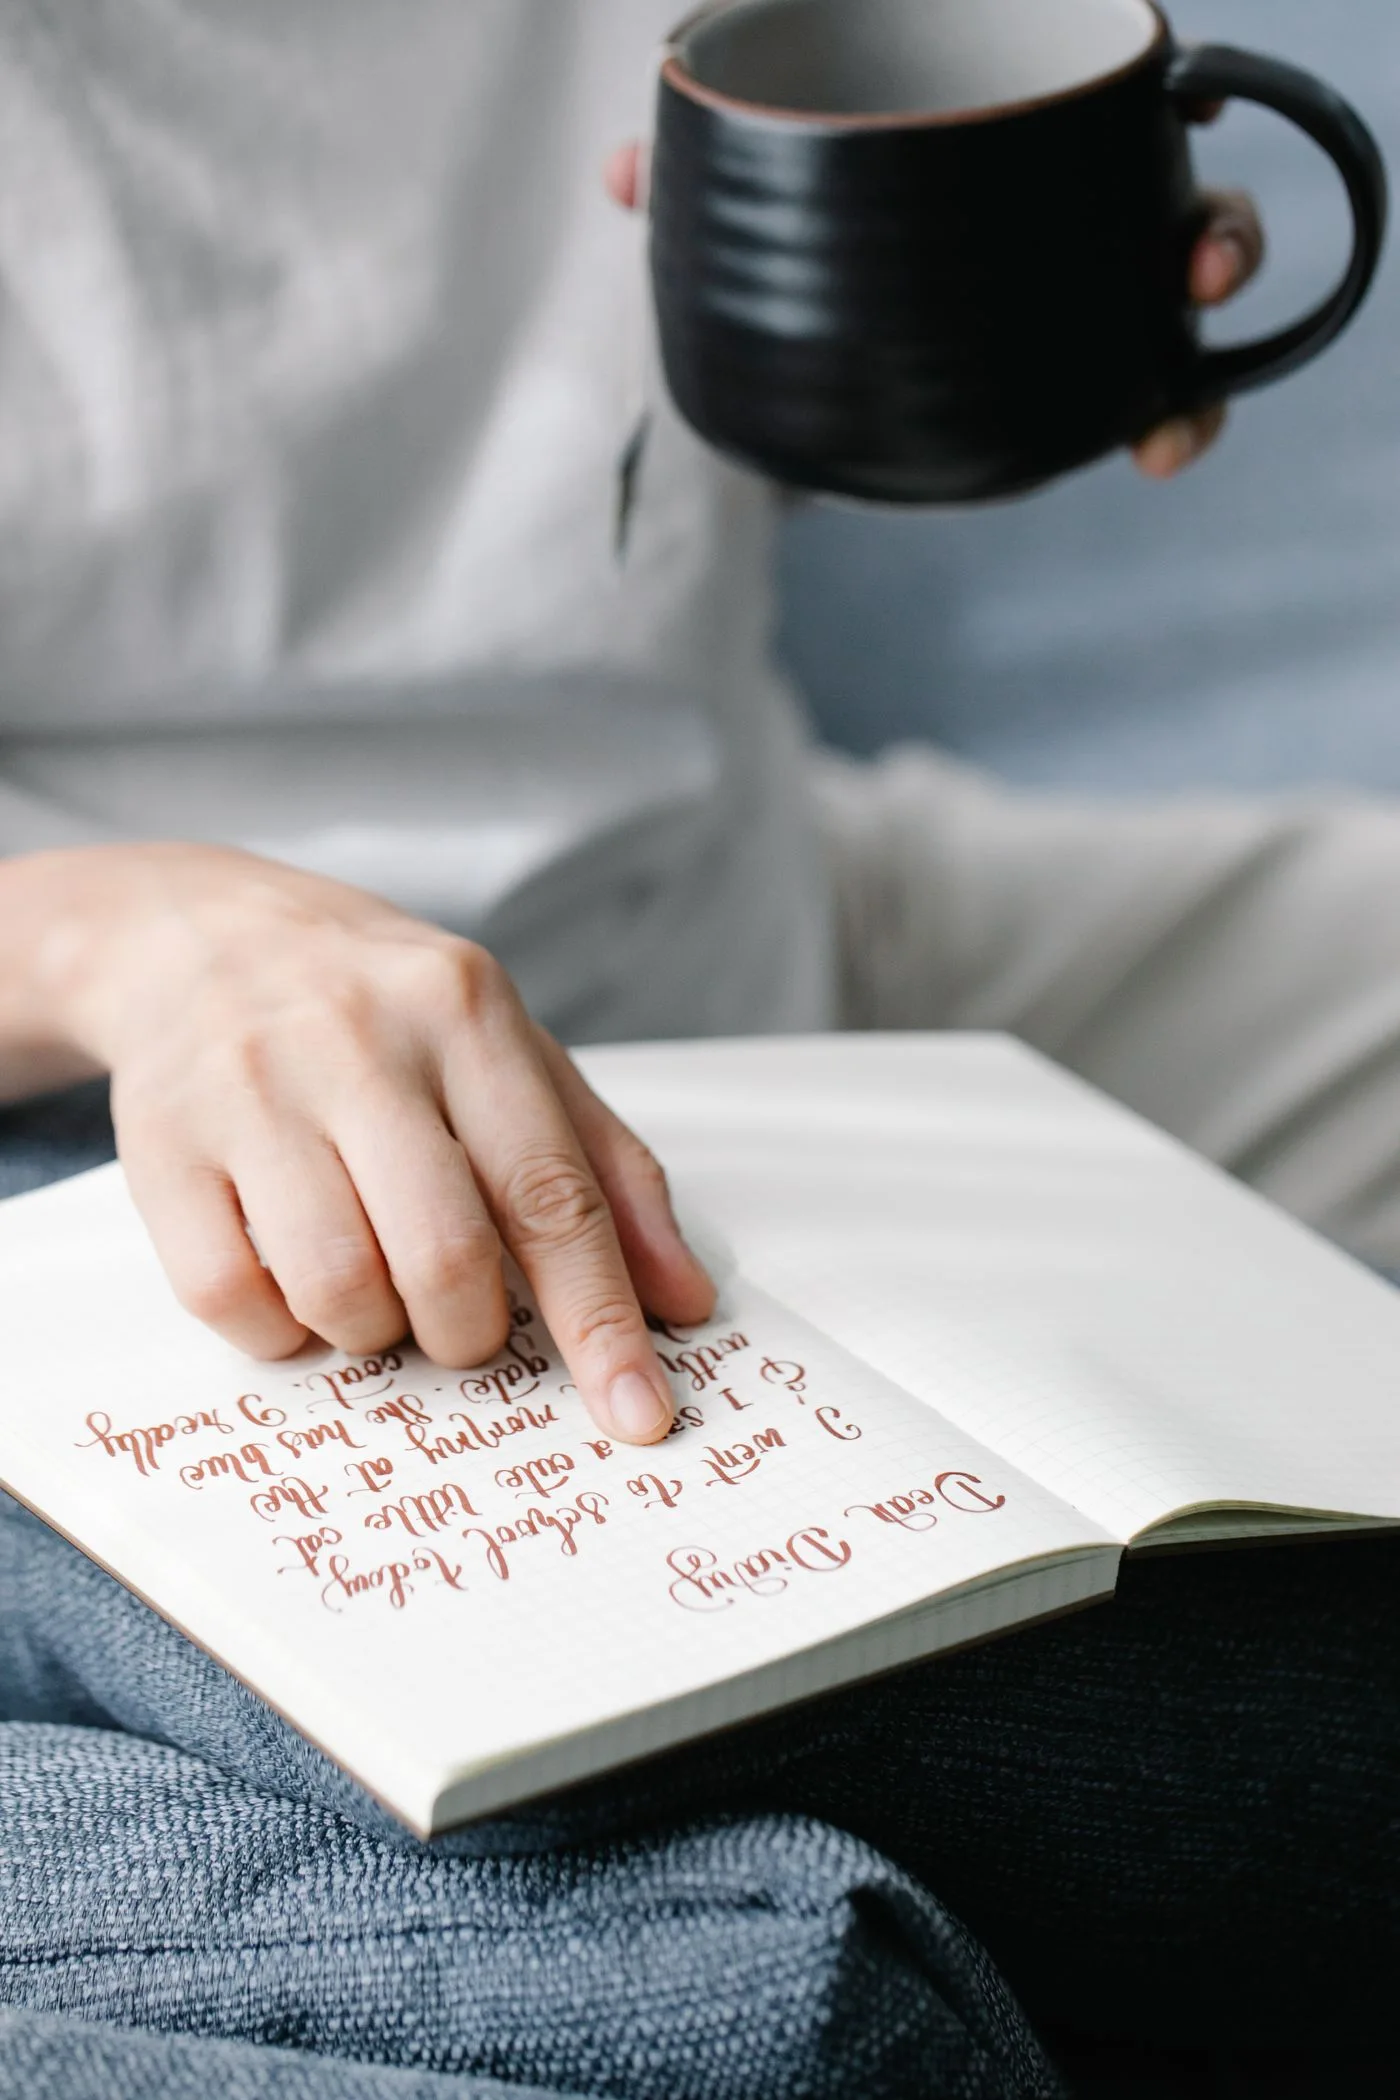 Dear Diary
I went to school today
& I a cute little cat
with mommy at the
gate. She has blue
coat. I really